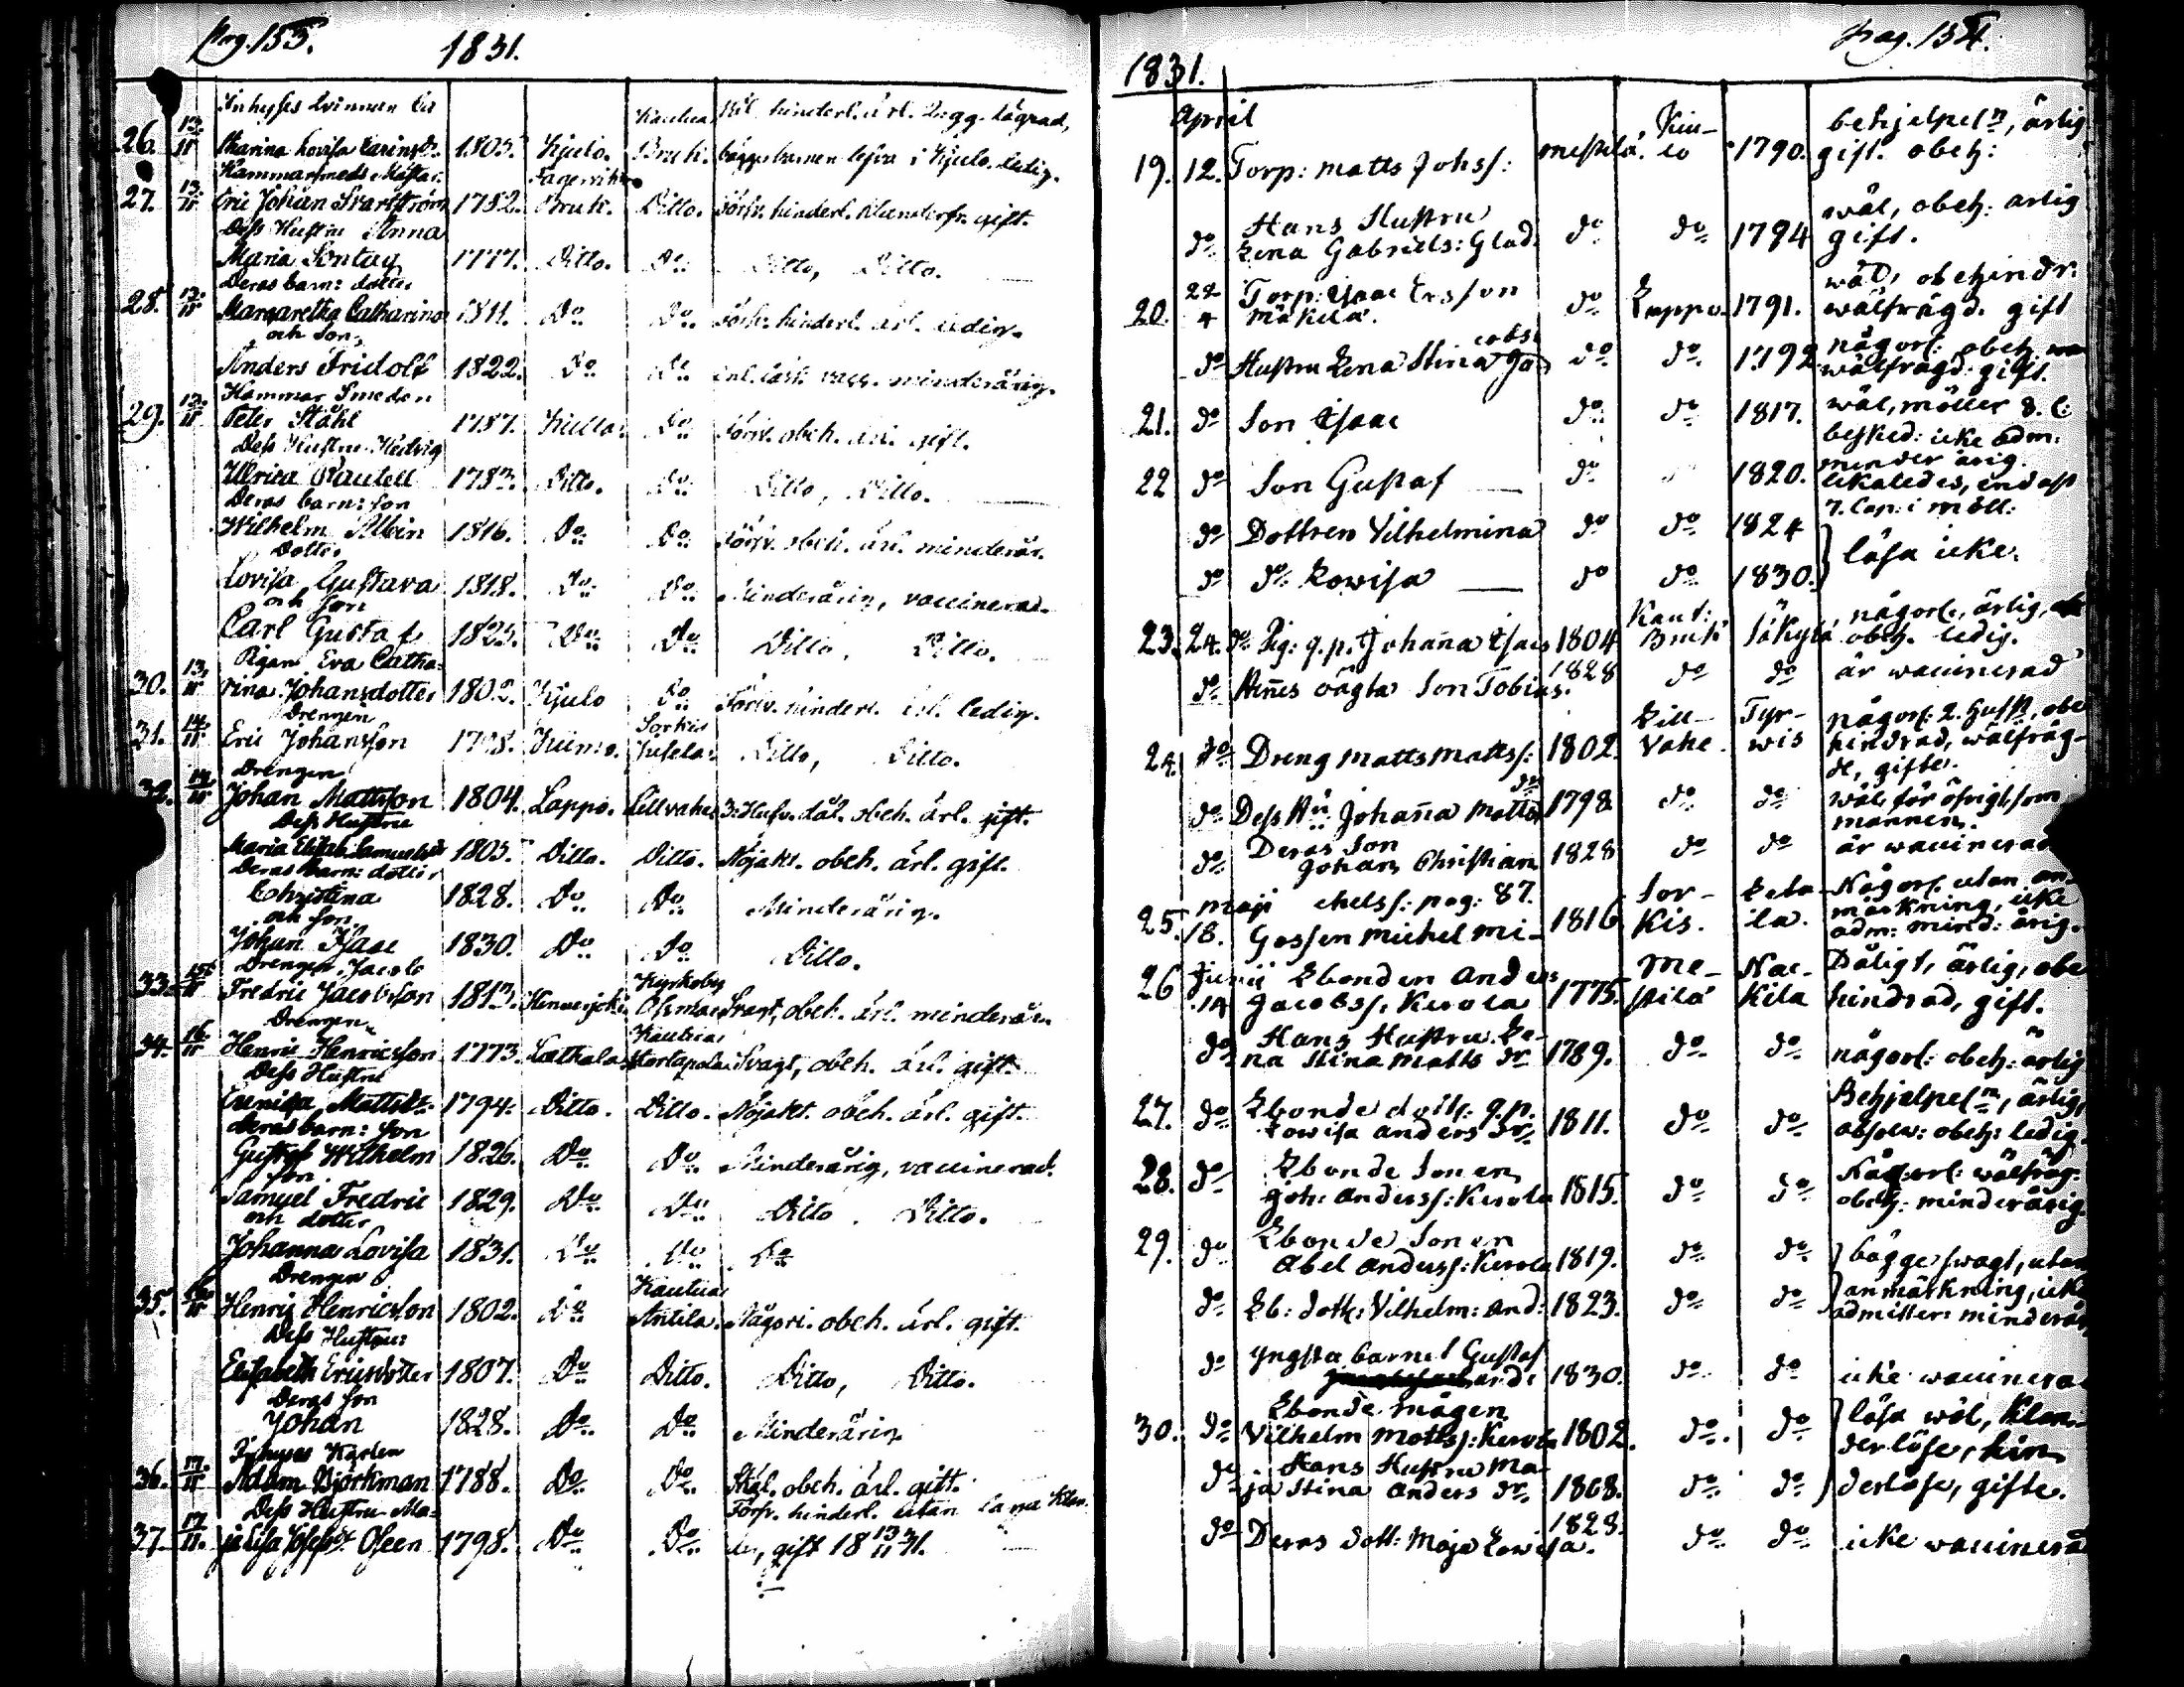 Pag. 153.
1831.
Inhyses Qvinnan Ca
26. 13/11 tharina Lovisa Carinsdr. 1805. Kjulo. Kautua Bruk. hinderl. ärl. 2 ggr lägrad, bägge barnen lefva i Kjulo. ledig.
Hammarsmeds Mästar.
27. 13/11 Eric Johan Svartström 1782. Fagerviks Bruk. Ditto. Försv. hinderl. klanderfr. gift.
Dess Hustru Anna
Maria Sontag 1777. Ditto. Do. Ditto, Ditto.
Deras barn: dotter
28. 13/11 Margaretha Catharina 1811. Do. Do. Försv. hinderl. ärl. ledig.
och Son
Anders Fridolf 1822. Do. Do. vacc. minderårig.
Hammar Smeden
29. 13/11 Peter Ståhl 1787. Do. Försv. obeh. ärl. gift.
Dess Hustru Hedvig
Ulrica Rautell 1783. Ditto. Do. Ditto, Ditto.
Deras barn: son
Wilhelm Albin 1816. Do. Do. Försv. obeh. ärl. minderår.
Dotter
Lovisa Gustava 1818. Do. Do. Minderårig, vaccinerad.
och son
Carl Gustaf 1825. Do. Do. Ditto, Ditto.
Pigan Eva Catha-
30. 13/11 rina Johansdotter 1802. Kjulo Do. Försv. hinderl. ärl. ledig.
Drengen
31. 14/11 Eric Johansson 1798. Kiimo. Sorkis Ditto, Ditto.
Drengen
32. 14/11 Johan Mattsson 1804. Lappo. Lillvahe 3. Hufv. dål. obeh. ärl. gift.
Dess Hustru
Maria Elisab. Samuelsdr 1805. Ditto. Ditto. Nöjakt. obeh. ärl. gift.
Deras Barn: dotter
Christina 1828. Do. Do. Minderårig.
och son
Johan Isaac 1830. Do. Do. Ditto.
Drengen Jacob
33. 15/11 Fredric Jacobsson 1813. Hennerjoki. Kyrkoby Ohsmans Svagt, obeh. ärl. minderår.
Drengen
34. 16/11 Henric Henricsson 1773. Lathala. Kautua Svagt, obeh. ärl. gift.
Dess Hustru
Mattsdr. 1794. Ditto. Ditto. Nöjakt. obeh. ärl. gift.
Deras barn: son
Gustaf Wilhelm 1826. Do. Do. Minderårig, vaccinerad.
son
Samuel Fredric 1829. Do. Do. Ditto. Ditto.
och dotter
Johanna Lovisa 1831. Do. Do. Do
Drengen
35. 16/11 Henric Henricsson 1802. Do. Kautua Antila. Någorl. obeh. ärl. gift.
Dess Hustru
Elisabeth Ericsdotter 1807. Do. Ditto. Ditto, Ditto.
Deras son
Johan 1828. Do. Do. Minderårig
Inhyses Karlen
36. 17/11 Adam Björkman 1788. Do. Do. Skäl. obeh. ärl. gift.
Dess Hustru Ma-
37. 17/11. ja Lisa Josefsdr Oseen 1798. Do. Do. Försv. hinderl. utan lagua klan- der, gift 18 13/11 31.
pag. 154.
1831.
April
19. 12. Torp: Matts Johss: Mestilä. Kiu-lo 1790. behjelpeln, ärlig gift. obeh:
do Hans Hustru Lena Gabriels: Glad. do do 1794 wäl, obeh: ärlig gift.
20. 22/4 Torp: Isaac Ersson Mäkilä. do Lappo. 1791. wäl, obehindr. wälfrägd. gift
do Hustru Lena Stina Jacobs do do 1792 någorl: obeh. wälfrägd: gift.
21. do Son Isaac do do 1817. wäl, möller 8. C: besked: icke adm: minder årig.
22 do Son Gustaf do 1820. likaledes, endast 7. Cap: i möll:
do Dottren Vilhelmina do do 1824
do do Lowisa do do 1830. } läsa icke.
23. 24. do Pig: q.p. Johanna Isacs 1804 Kaut: Bruk Säkylä någorl:, ärlig, obeh. ledig.
do Hennes oägta Son Tobias. 1828 do do är waccinerad
24. do Dreng Matts Mattss: 1802. Lill-Vahe. Tyr-wis någorl: 2. Hufst, obe hindrad, wälfräg-de, gifte.
do Dess Hu: Johanna Matts dr 1798 do do wäl för öfrigt som mannen.
do Deras Son Johan Christian 1828 do do är waccinerad
25. Maji 18. Gossen Michel Mi-chelss: pag: 87. 1816 Sor-kis. Keta-ila. Någorl. utan an-märkning, icke adm: mind: årig.
26 Junii 14 Lbonden Anders Jacobss. Kerola 1775. Me-stilä Kila Dåligt, ärlig, obe hindrad, gift.
do Hans Hustru Le-na Stina Matts dr 1789. do do någorl: obeh: ärlig
27. do Lbonde dottr. q.p. Lowisa Anders dr 1811. do do Behjelpeln, ärlig, absolv: obeh: ledig.
28. do Lbonde Sonen Joh: Anderss: Kerola 1815. do do Någorl: wälfräg: obeh: minderårig.
29. do Lbonde Sonen Abel Anderss: Kerola 1819. do do } bägge swagt, utan
do Lb: dottr: Vilhelm: And: 1823. do do } anmärkning, icke admitter: minderår
do yngsta barnet Gustaf And: 1830. do do icke waccinera
30. do Lbonde mågen Vilhelm Mattss: Kerola 1802. do do } läsa wäl, klan-
do Hans Hustru Ma-ja Stina Anders dr. 1808. do do } derlöse, hin-derlöse, gifte.
do Deras dott: Maja Lowisa. 1828. do do icke waccinera